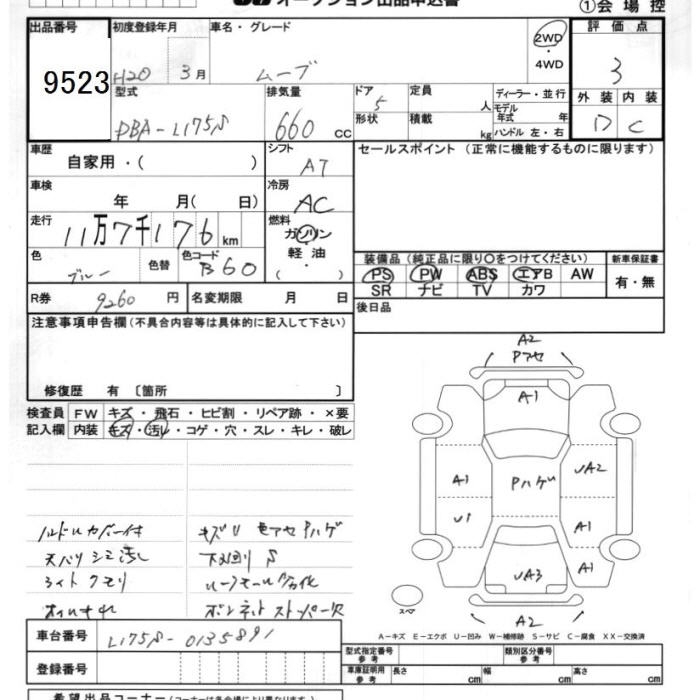 オークション出品申込書
①会場控
出品番号
9523
初度登録年月
H20 3月
車名・グレード
ムーブ
2WD
・
4WD
評価点
3
型式
DBA-L175S
排気量
660 cc
ドア
5
形状
定員
人
積載
kg
ディーラー・並行
モデル年式 年
ハンドル 左・右
外装
D
内装
C
車歴
自家用・( )
シフト
AT
セールスポイント (正常に機能するものに限ります)
車検
年 月( 日)
冷房
AC
走行
11万7千176km
燃料
ガソリン
軽油
・
( )
色
ブルー
色替
色コード
B60
装備品 (純正品に限り○をつけてください)
PS PW ABS エアB AW
SR ナビ TV カワ
新車保証書
有・無
R券 9260 円
名変期限 月 日
後日品
注意事項申告欄(不具合内容等は具体的に記入して下さい)
修復歴 有 〔箇所 〕
検査員記入欄
FW キズ・飛石・ヒビ割・リペア跡・×要
内装 キズ・汚レ・コゲ・穴・スレ・キレ・破レ
ハンドルカバー付
天バリ シミ汚レ
ライト クモリ
オイルナカレ
キズU 色アセ Pハゲ
下廻リS
ルーフモール劣化
ボンネットストッパー欠
A2
Pアセ
A1
A1
U1
Pハゲ
UA2
A1
A1
UA3
A2
スペア
A-キズ E-エクボ U-凹み W-補修跡 S-サビ C-腐食 XX-交換済
車台番号 L175S-0135891
登録番号
型式指定番号 参考
類別区分番号 参考
車庫証明用 参考
長さ cm
幅 cm
高さ cm
希望出品コーナー(コーナーは各会場により異なります)